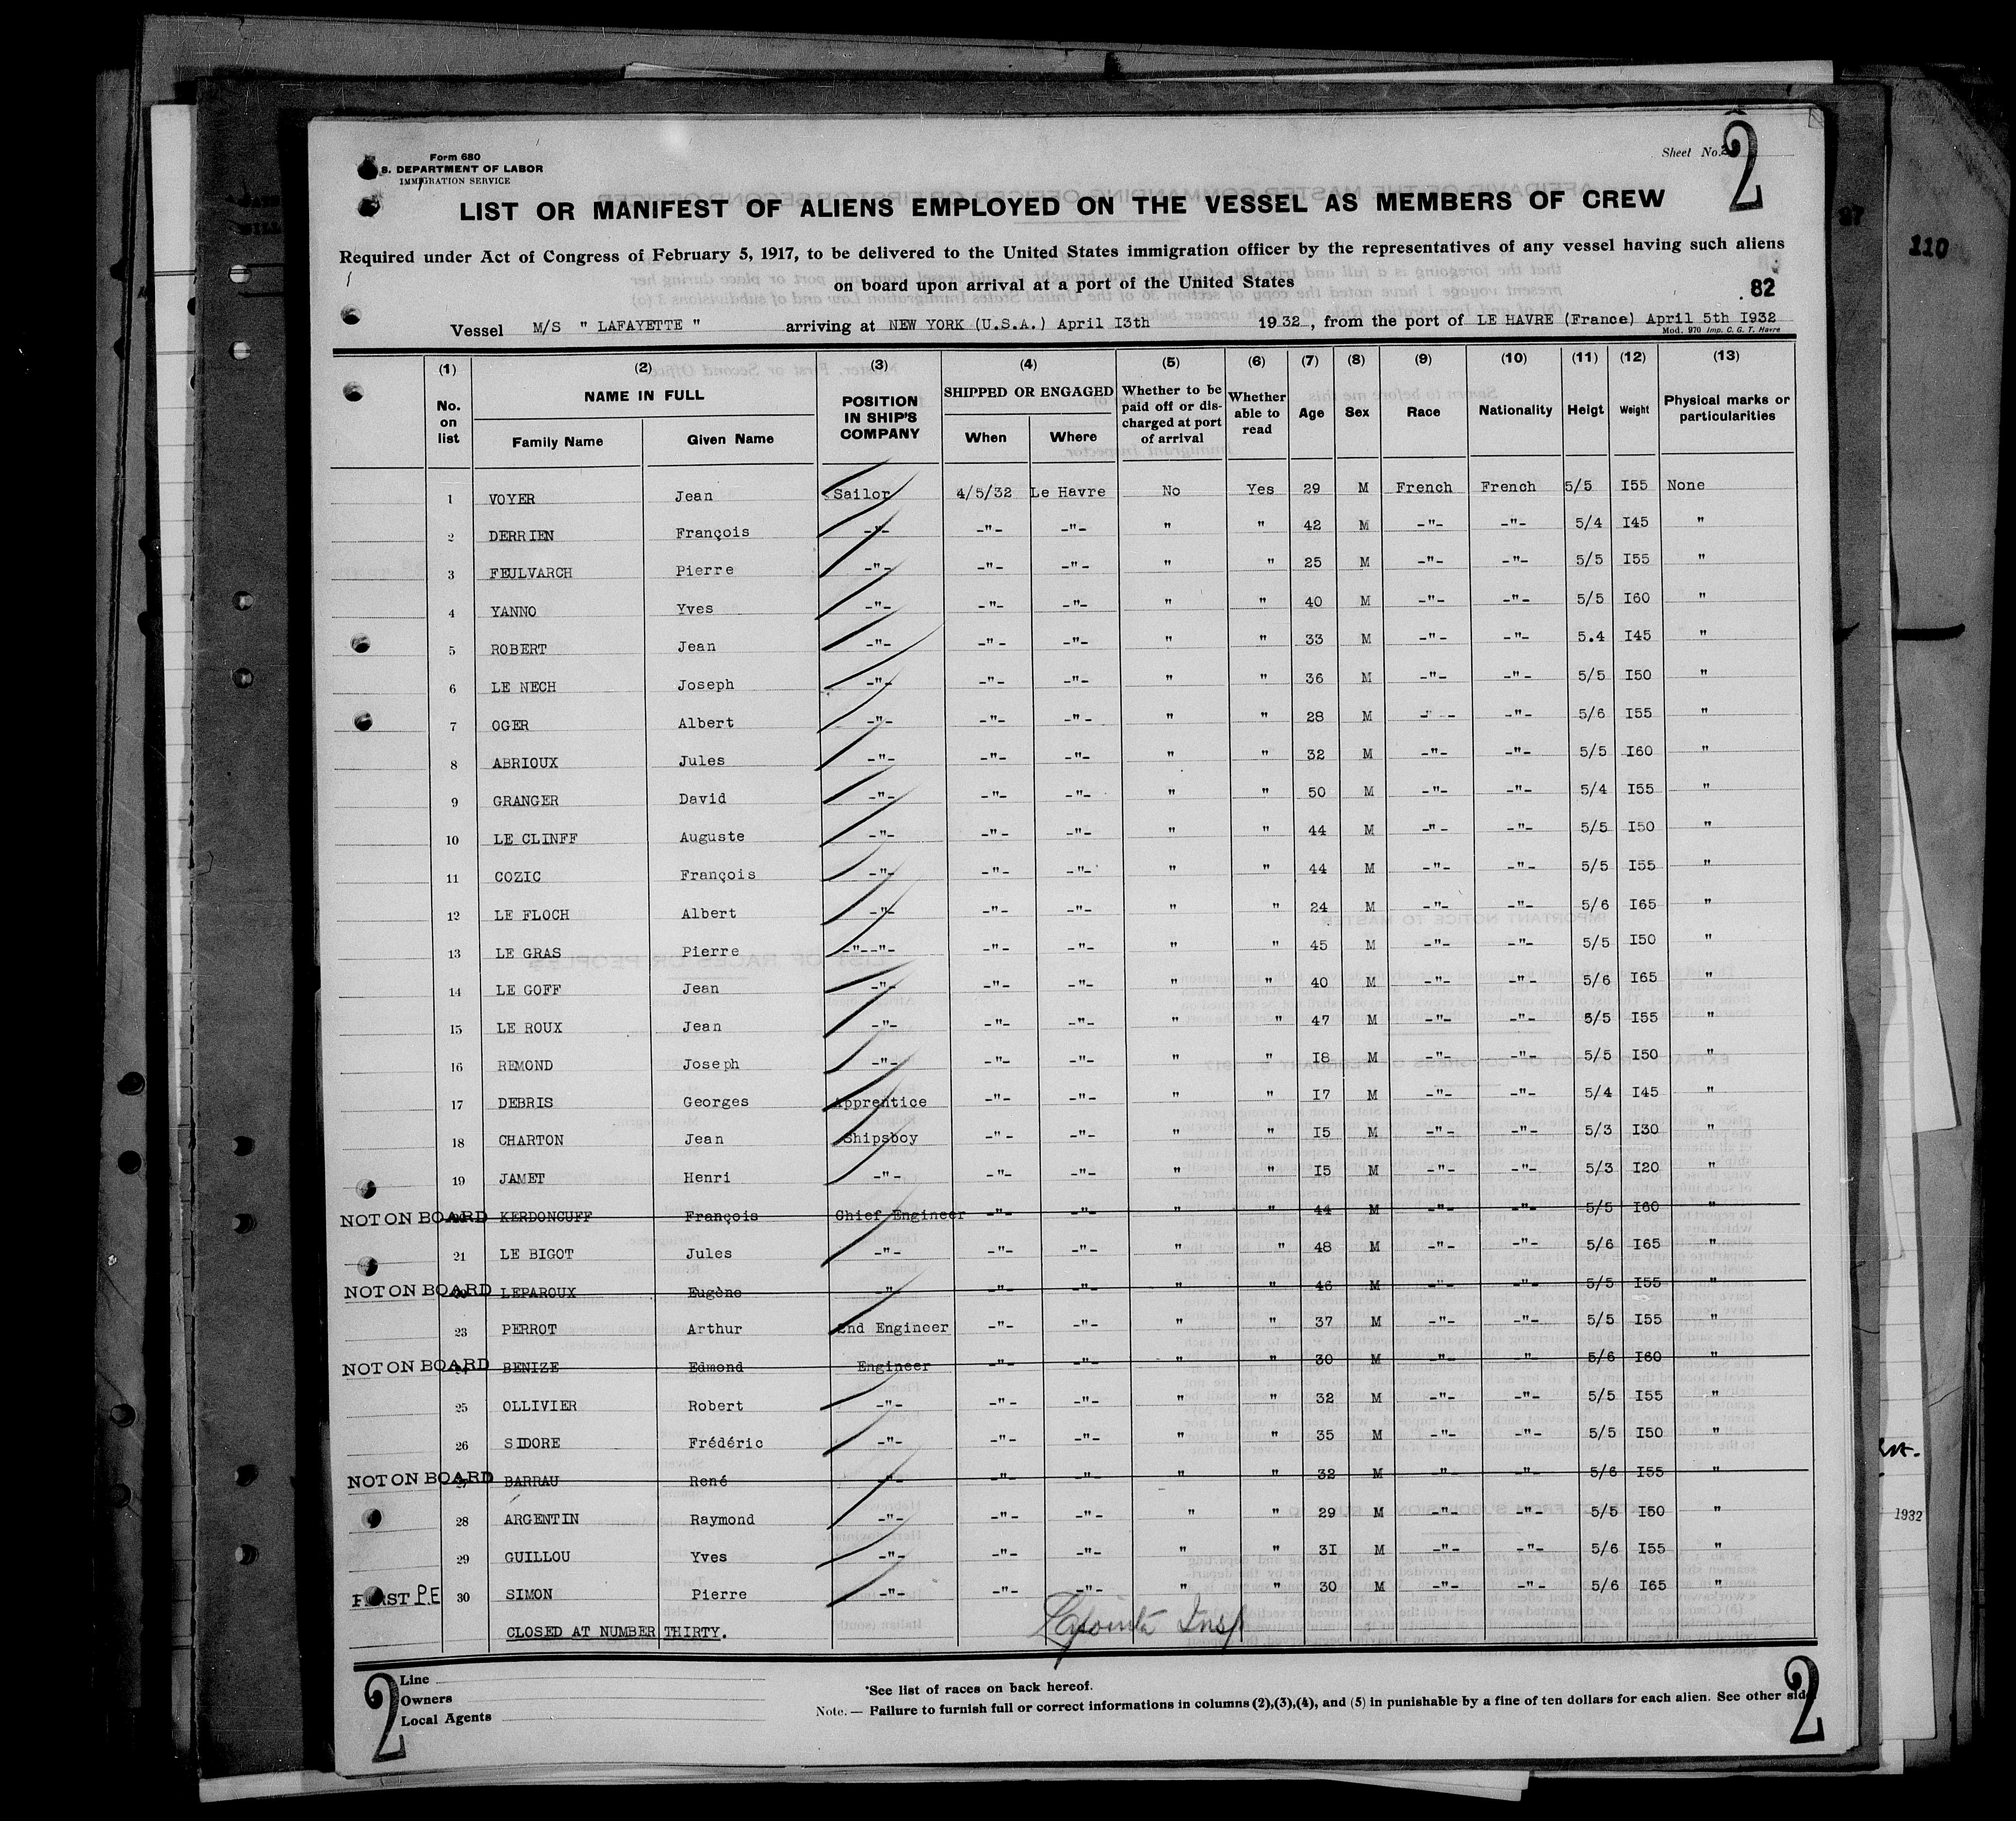 Form 680
S. DEPARTMENT OF LABOR
IMMIGRATION SERVICE
Sheet No. 2
2
LIST OR MANIFEST OF ALIENS EMPLOYED ON THE VESSEL AS MEMBERS OF CREW
Required under Act of Congress of February 5, 1917, to be delivered to the United States immigration officer by the representatives of any vessel having such aliens
on board upon arrival at a port of the United States
82
110
Vessel M/S " LAFAYETTE " arriving at NEW YORK (U.S.A.) April I3th 1932, from the port of LE HAVRE (France) April 5th I932
Mod. 970 Imp. C. G. T. Havre
(1) (2) (3) (4) (5) (6) (7) (8) (9) (10) (11) (12) (13)
No. on list NAME IN FULL Family Name Given Name POSITION IN SHIP'S COMPANY SHIPPED OR ENGAGED When Where Whether to be paid off or discharged at port of arrival Whether able to read Age Sex Race Nationality Heigt Weight Physical marks or particularities
1 VOYER Jean Sailor 4/5/32 Le Havre No Yes 29 M French French 5/5 I55 None
2 DERRIEN François -"- -"- -"- " " 42 M -"- -"- 5/4 I45 "
3 FEULVARCH Pierre -"- -"- -"- " " 25 M -"- -"- 5/5 I55 "
4 YANNO Yves -"- -"- -"- " " 40 M -"- -"- 5/5 I60 "
5 ROBERT Jean -"- -"- -"- " " 33 M -"- -"- 5.4 I45 "
6 LE NECH Joseph -"- -"- -"- " " 36 M -"- -"- 5/5 I50 "
7 OGER Albert -"- -"- -"- " " 28 M -"- -"- 5/6 I55 "
8 ABRIOUX Jules -"- -"- -"- " " 32 M -"- -"- 5/5 I60 "
9 GRANGER David -"- -"- -"- " " 50 M -"- -"- 5/4 I55 "
10 LE CLINFF Auguste -"- -"- -"- " " 44 M -"- -"- 5/5 I50 "
11 COZIC François -"- -"- -"- " " 44 M -"- -"- 5/5 I55 "
12 LE FLOCH Albert -"- -"- -"- " " 24 M -"- -"- 5/6 I65 "
13 LE GRAS Pierre -"--"- -"- -"- " " 45 M -"- -"- 5/5 I50 "
14 LE GOFF Jean -"- -"- -"- " " 40 M -"- -"- 5/6 I65 "
15 LE ROUX Jean -"- -"- -"- " " 47 M -"- -"- 5/5 I55 "
16 REMOND Joseph -"- -"- -"- " " I8 M -"- -"- 5/5 I50 "
17 DEBRIS Georges Apprentice -"- -"- " " I7 M -"- -"- 5/4 I45 "
18 CHARTON Jean Shipsboy -"- -"- " " I5 M -"- -"- 5/3 I30 "
19 JAMET Henri -"- -"- -"- " " I5 M -"- -"- 5/3 I20 "
NOT ON BOARD KERDONCUFF François Chief Engineer -"- -"- " " 44 M -"- -"- 5/5 I60 "
21 LE BIGOT Jules -"- -"- -"- " " 48 M -"- -"- 5/6 I65 "
NOT ON BOARD LEPAROUX Eugène -"- -"- -"- " " 46 M -"- -"- 5/5 I55 "
23 PERROT Arthur 2nd Engineer -"- -"- " " 37 M -"- -"- 5/5 I55 "
NOT ON BOARD BENIZE Edmond Engineer -"- -"- " " 30 M -"- -"- 5/6 I60 "
25 OLLIVIER Robert -"- -"- -"- " " 32 M -"- -"- 5/5 I55 "
26 SIDORE Frédéric -"- -"- -"- " " 35 M -"- -"- 5/5 I50 "
NOT ON BOARD 27 BARRAU René -"- -"- -"- " " 32 M -"- -"- 5/6 I55 "
28 ARGENTIN Raymond -"- -"- -"- " " 29 M -"- -"- 5/5 I50 "
29 GUILLOU Yves -"- -"- -"- " " 3I M -"- -"- 5/6 I55 "
FIRST P.E 30 SIMON Pierre -"- -"- -"- " " 30 M -"- -"- 5/6 I65 "
CLOSED AT NUMBER THIRTY.
Insp
1932
Line
Owners
Local Agents
*See list of races on back hereof.
Note. — Failure to furnish full or correct informations in columns (2),(3),(4), and (5) in punishable by a fine of ten dollars for each alien. See other side.
2
2